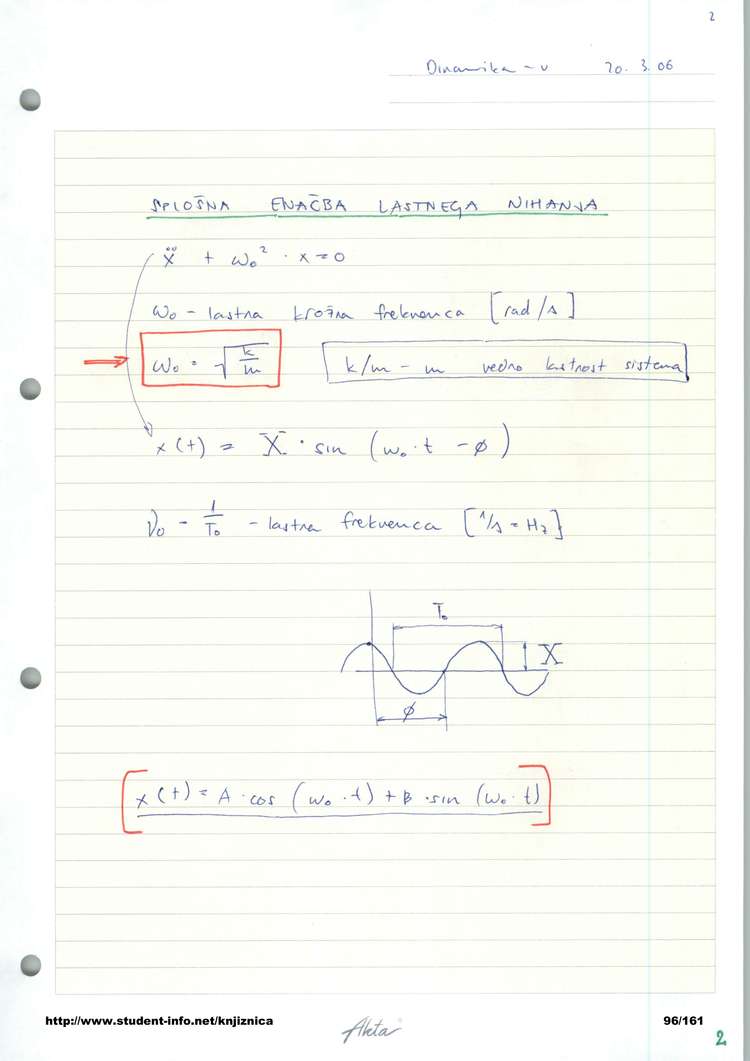 2
Dinamika - v 20. 3. 06
SPLOŠNA ENAČBA LASTNEGA NIHANJA
ẍ + ω₀² · x = 0
ω₀ - lastna krožna frekvenca [rad/s]
ω₀ = √(k/m) k/m - m vedno lastnost sistema
x(t) = X · sin (ω₀ · t - ϕ)
ν₀ = 1/T₀ - lastna frekvenca [1/s = Hz]
T₀
X
ϕ
x(t) = A · cos (ω₀ · t) + B · sin (ω₀ · t)
http://www.student-info.net/knjiznica Akta 96/161
2